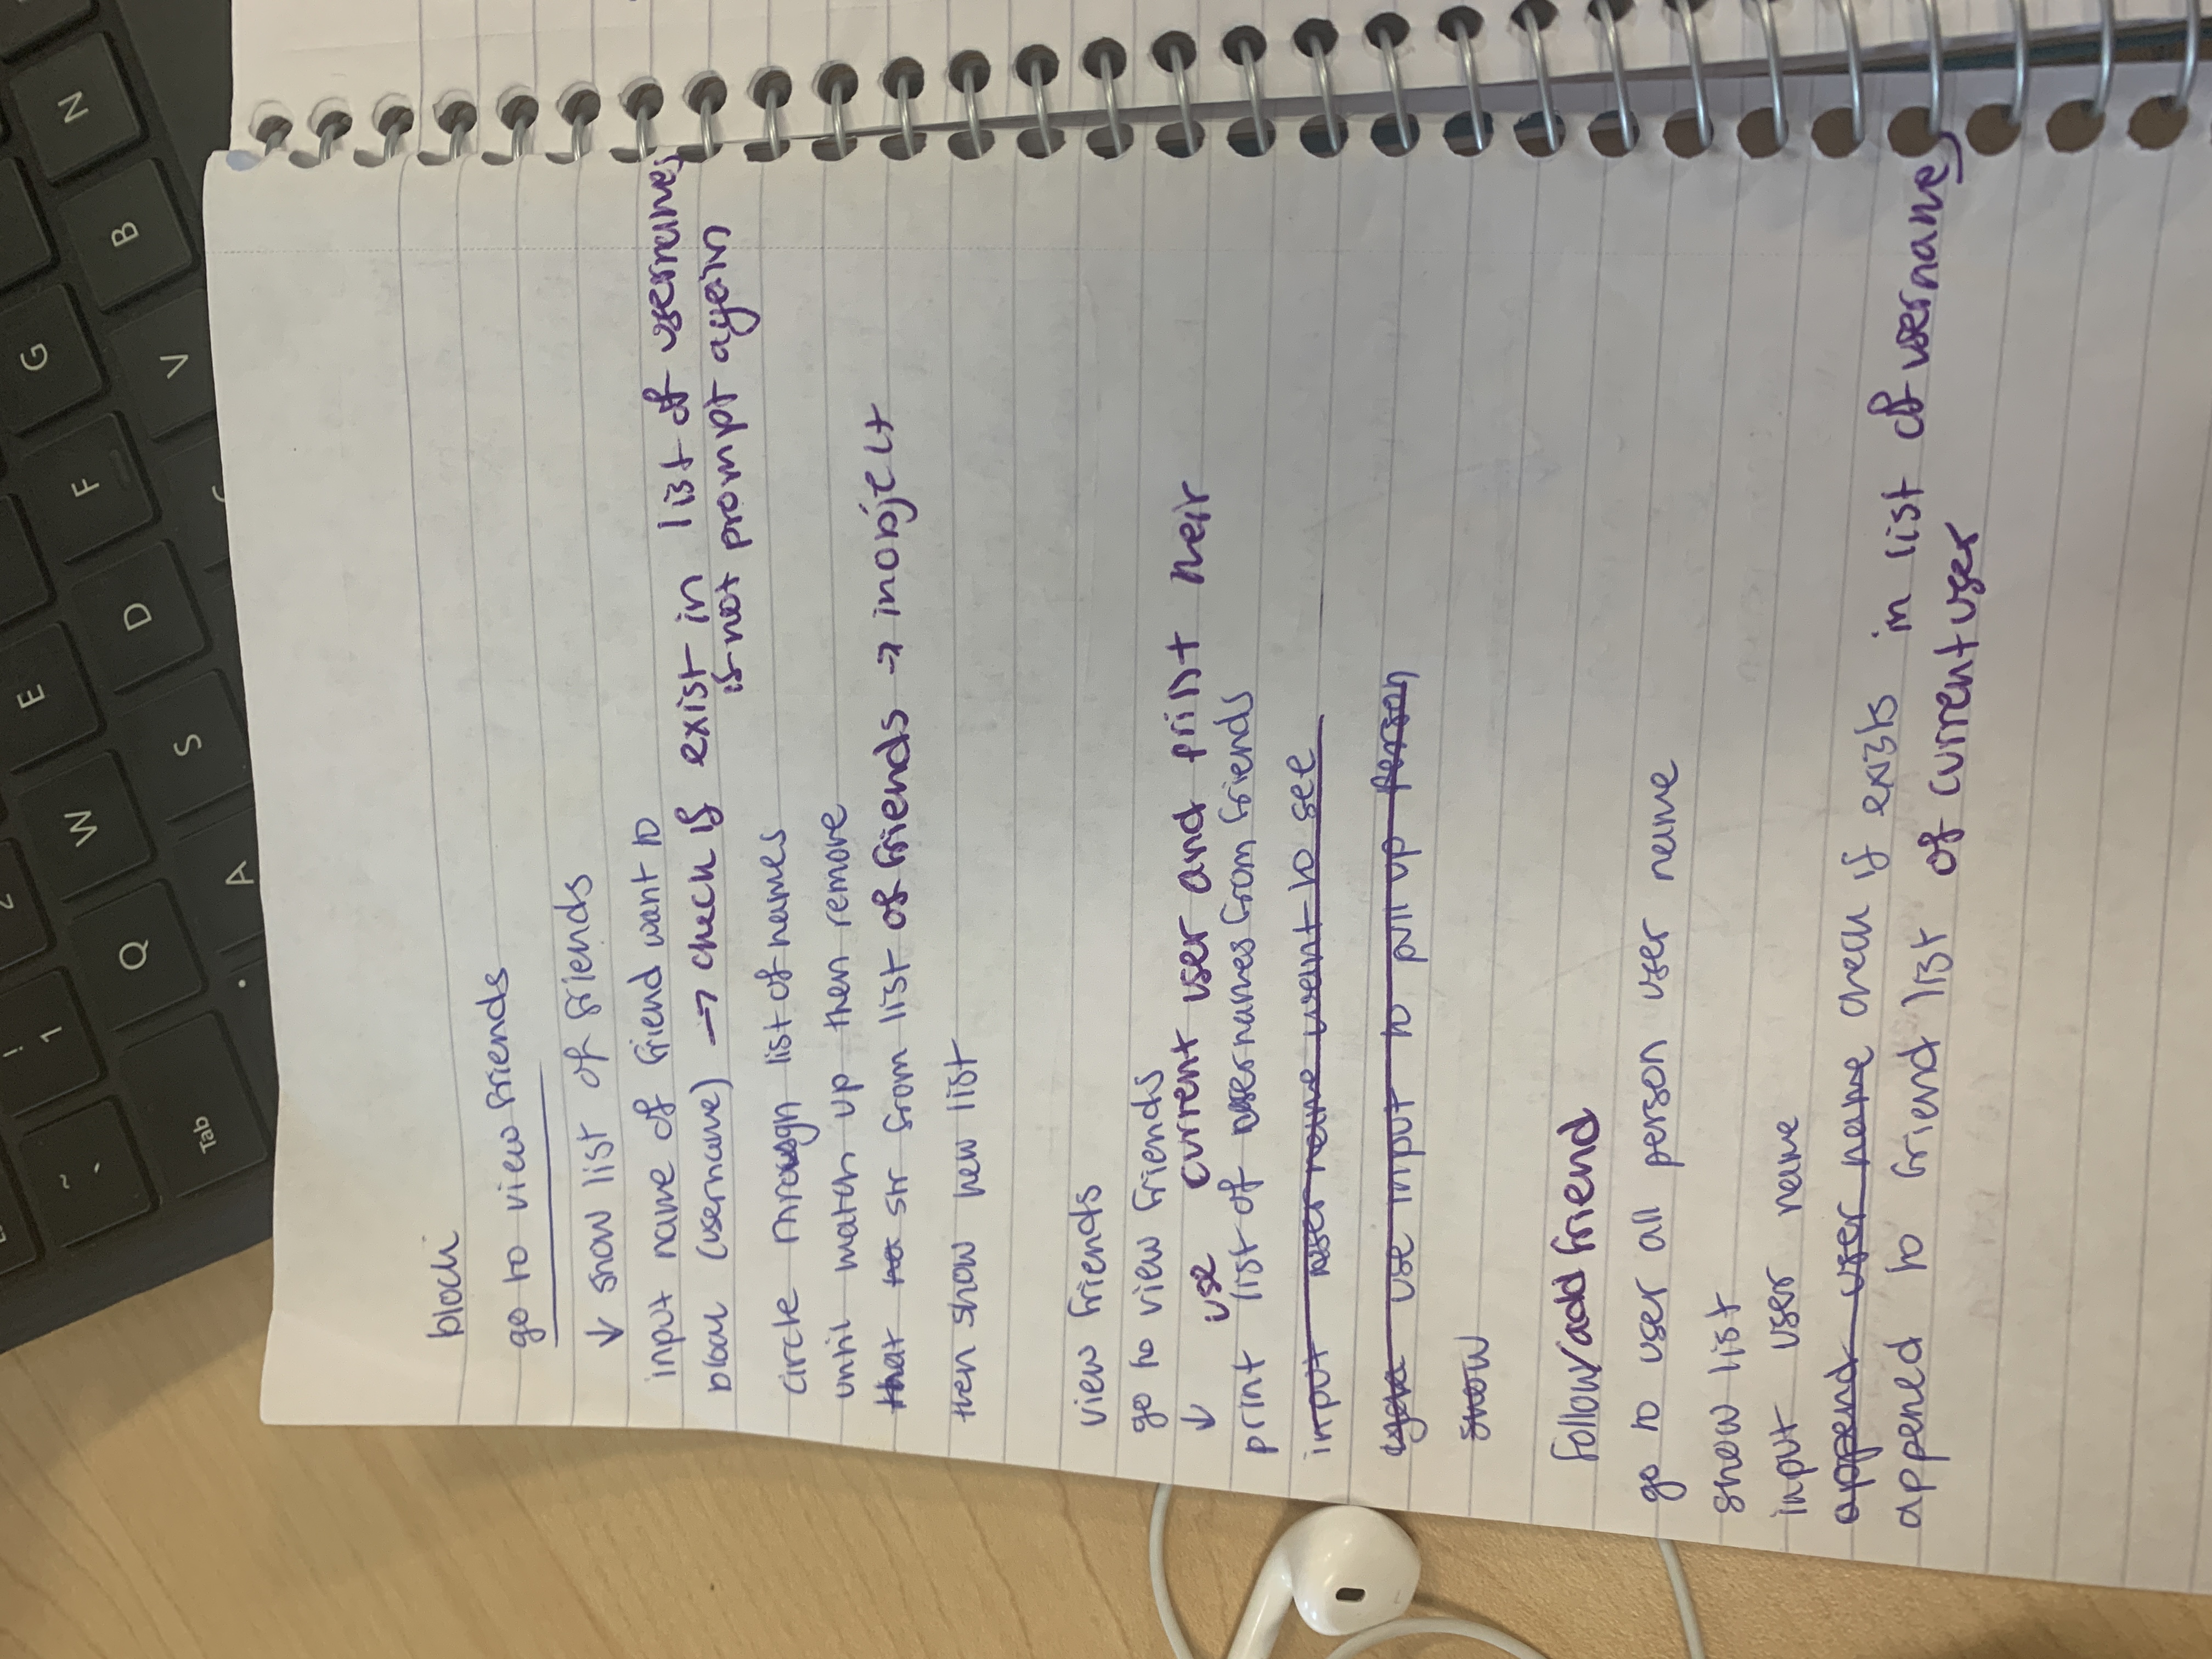 ~
`
!
1
2
Q
W
E
Tab
A
S
D
F
G
V
B
N
block
go to view friends
↓ show list of friends
input name of friend want to
block (username) → check if exist in list of usernames
if not prompt again
circle through list of names
until match up then remove
that str from list of friends → in object
then show new list
view friends
go to view friends
↓ use current user and print their
print list of usernames from friends
input user name want to see
use input to pull up person
show
follow/add friend
go to user all person user name
show list
input user name
append user name check if exists in list of usernames
appened to friend list of current user